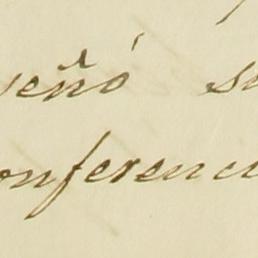 eñó su
onferenci